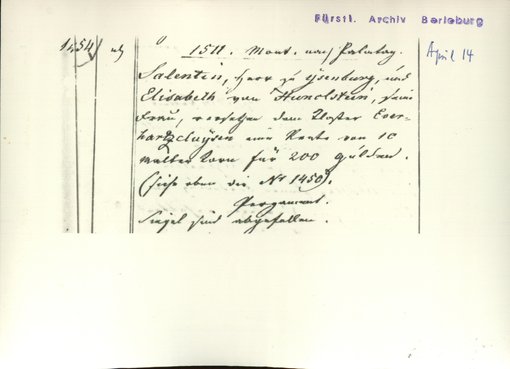 Fürstl. Archiv Berleburg
1454
1511. Mont. nach Palmtag.
April 14
Salentin, Herr zu Ysenburg, und
Elisabeth von Hunolstein, seine
Frau, versetzen dem Kloster Ever-
hartzcluysen eine Rente von 10
Malter Korn für 200 Gulden.
(siehe oben die № 1450).
Pergament.
Siegel sind abgefallen.